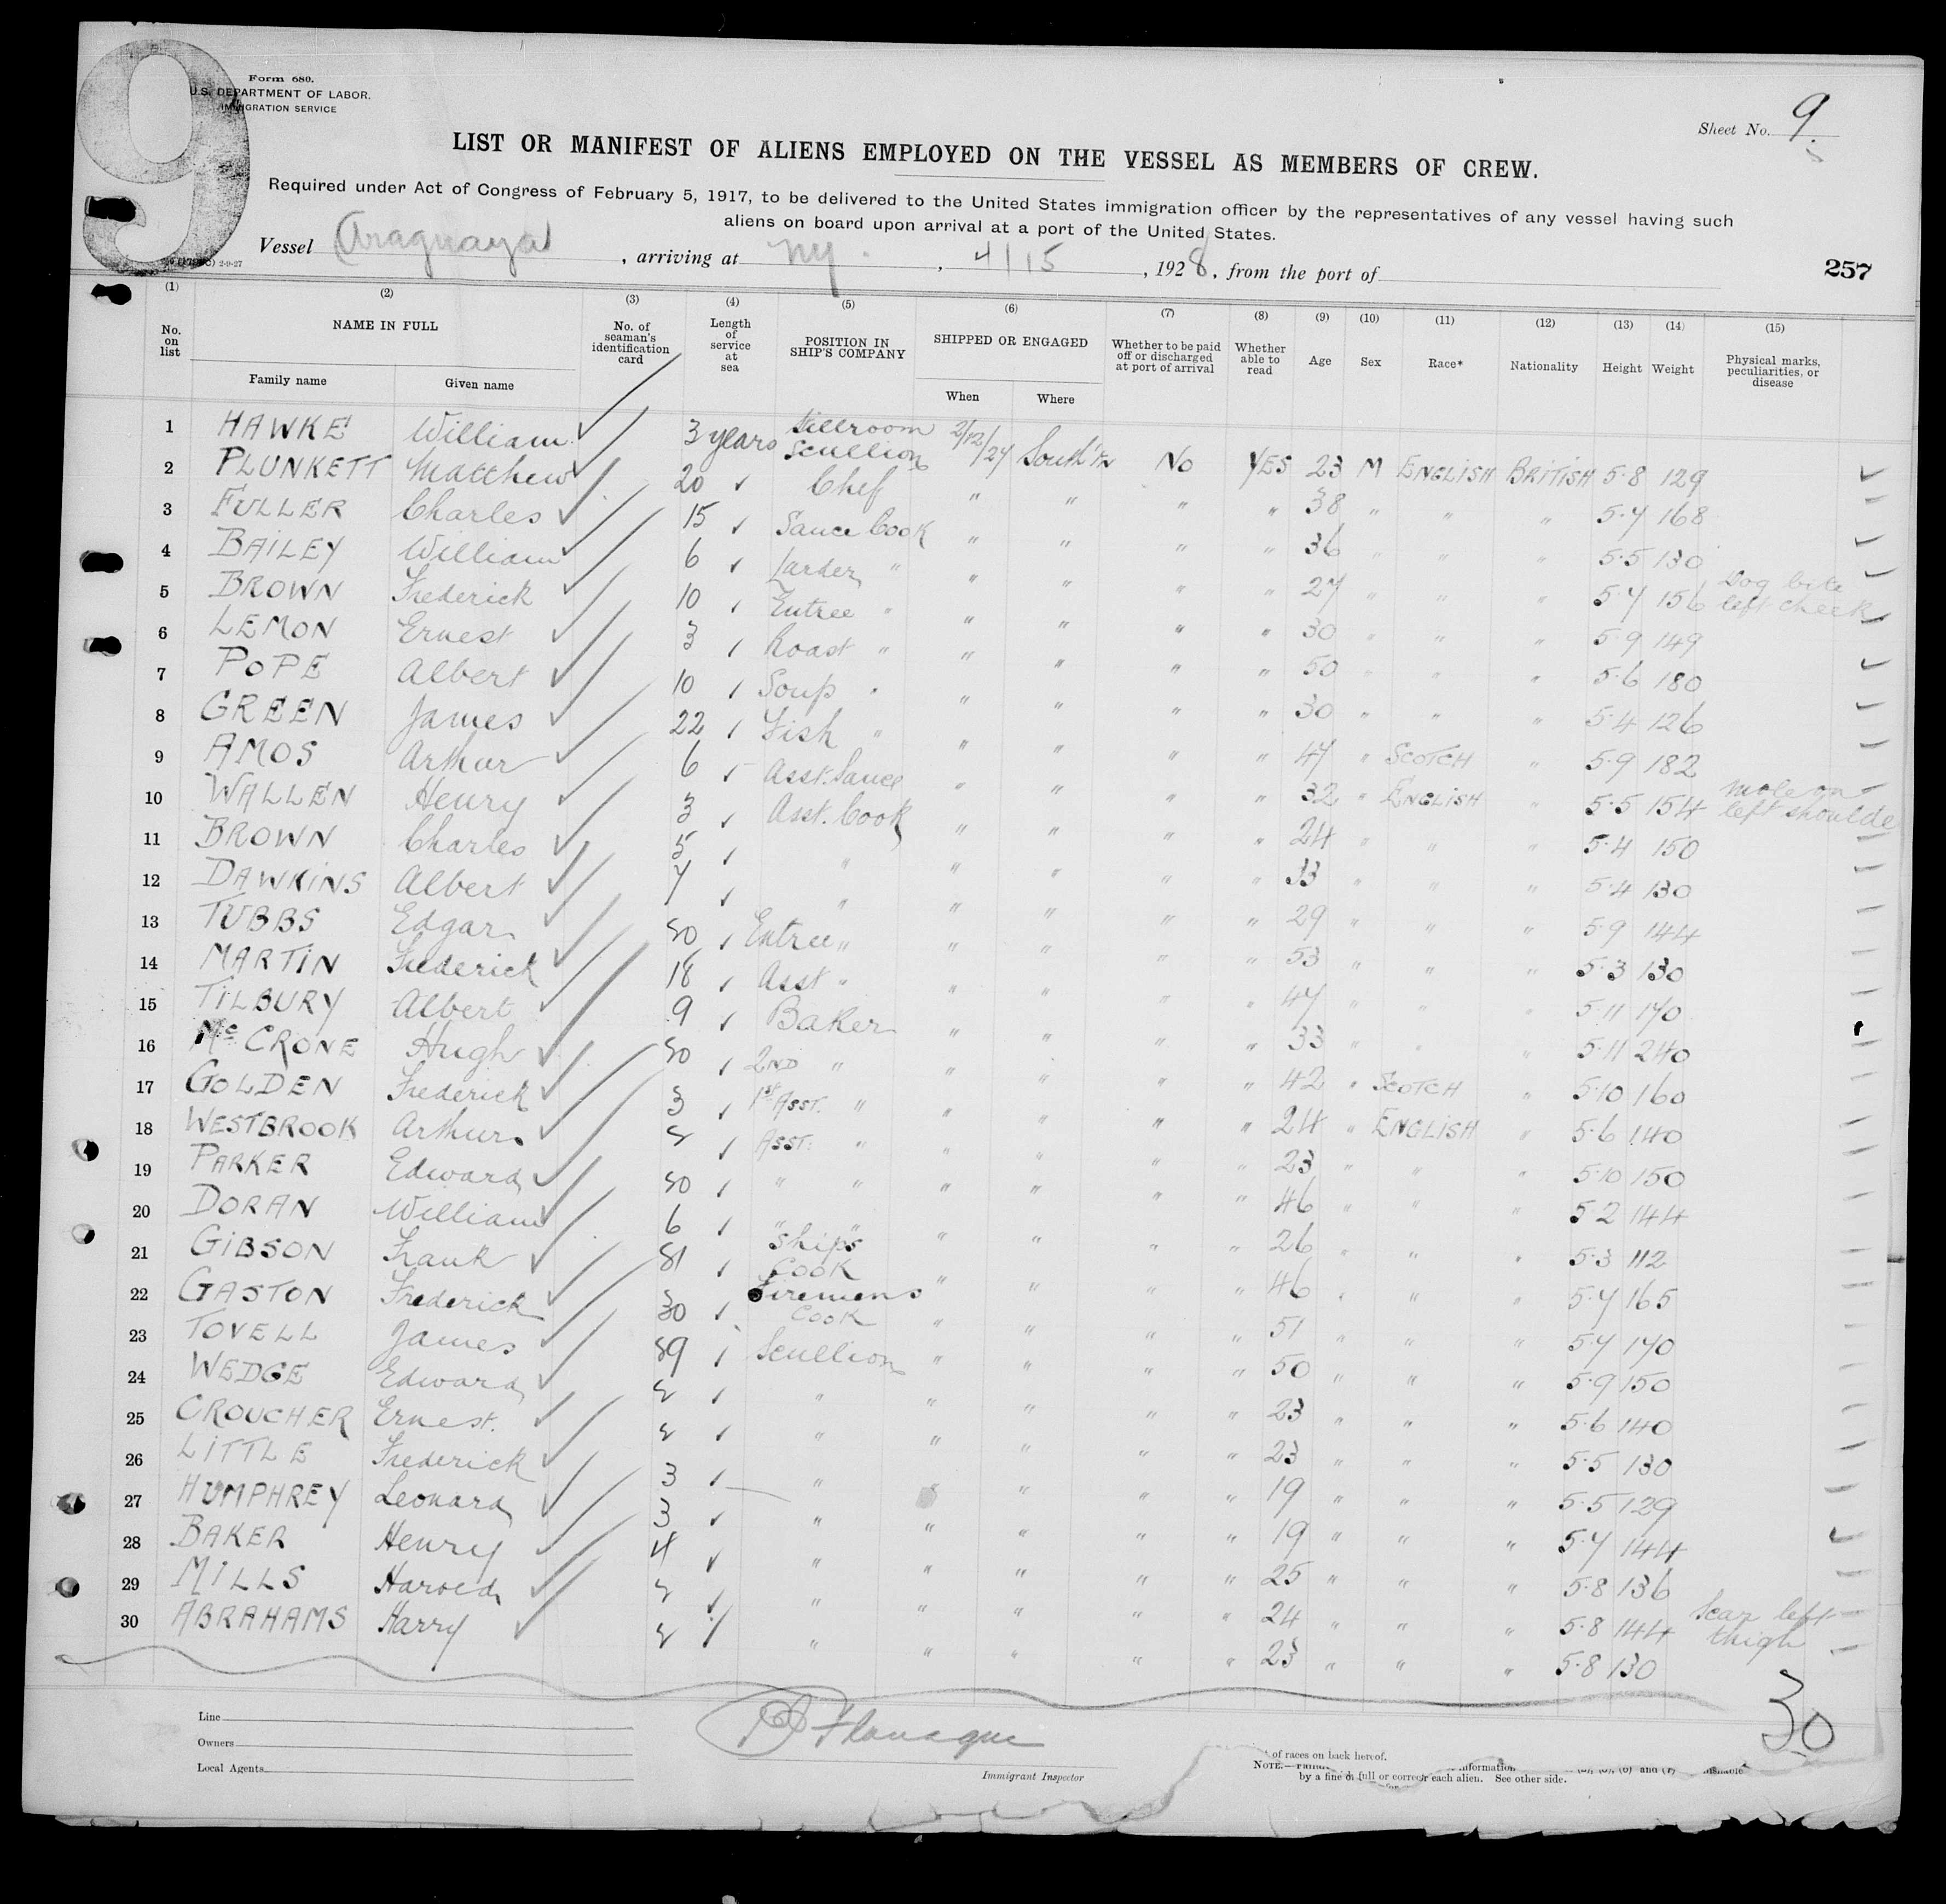 9
Form 680.
U.S. DEPARTMENT OF LABOR.
IMMIGRATION SERVICE
Sheet No. 9.
LIST OR MANIFEST OF ALIENS EMPLOYED ON THE VESSEL AS MEMBERS OF CREW.
Required under Act of Congress of February 5, 1917, to be delivered to the United States immigration officer by the representatives of any vessel having such
aliens on board upon arrival at a port of the United States.
Vessel Araguaya, arriving at NY., 4/15, 1928, from the port of
2-9-27
257
(1) (2) (3) (4) (5) (6) (7) (8) (9) (10) (11) (12) (13) (14) (15)
No. on list NAME IN FULL Family name Given name No. of seaman's identification card Length of service at sea POSITION IN SHIP'S COMPANY SHIPPED OR ENGAGED When Where Whether to be paid off or discharged at port of arrival Whether able to read Age Sex Race* Nationality Height Weight Physical marks, peculiarities, or disease
1 HAWKE William 3 years Stillroom Scullion 2/12/27 South'n No YES 23 M ENGLISH BRITISH 5-8 129
2 PLUNKETT Matthew 20 Chef " " " " 38 " " " 5-7 168
3 FULLER Charles 15 Sauce Cook " " " " 36 " " " 5-5 130
4 BAILEY William 6 Larder " " " " " 27 " " " 5-7 156 Dog bite left cheek
5 BROWN Frederick 10 Entree " " " " " 30 " " " 5-9 149
6 LEMON Ernest 3 Roast " " " " " 50 " " " 5-6 180
7 POPE Albert 10 Soup " " " " " 30 " " " 5-4 126
8 GREEN James 22 Fish " " " " " 47 " SCOTCH " 5-9 182
9 AMOS Arthur 6 Asst. Sauce " " " " 32 " ENGLISH " 5-5 154 mole on left shoulde
10 WALLEN Henry 3 Asst. Cook " " " " 24 " " " 5-4 150
11 BROWN Charles 5 " " " " " 33 " " " 5-4 130
12 DAWKINS Albert 7 " " " " " 29 " " " 5-9 144
13 TUBBS Edgar Entree " " " " " 53 " " " 5-3 130
14 MARTIN Frederick 18 Asst " " " " " 47 " " " 5-11 170
15 TILBURY Albert 9 Baker " " " " 33 " " " 5-11 240
16 McCRONE Hugh 2ND " " " " " 42 " SCOTCH " 5-10 160
17 GOLDEN Frederick 3 1st ASST. " " " " " 24 " ENGLISH " 5-6 140
18 WESTBROOK Arthur ASST. " " " " " 23 " " " 5-10 150
19 PARKER Edward " " " " " " 46 " " " 5-2 144
20 DORAN William 6 " " " " " " 26 " " " 5-3 112
21 GIBSON Frank Ships Cook " " " " 46 " " " 5-7 165
22 GASTON Frederick 30 Firemens Cook " " " " 51 " " " 5-7 170
23 TOVELL James Scullion " " " " 50 " " " 5-9 150
24 WEDGE Edward " " " " " 23 " " " 5-6 140
25 CROUCHER Ernest. " " " " " 23 " " " 5-5 130
26 LITTLE Frederick 3 " " " " 19 " " " 5-5 129
27 HUMPHREY Leonard 3 " " " " " 19 " " " 5-7 144
28 BAKER Henry 4 " " " " " 25 " " " 5-8 136
29 MILLS Harold " " " " " 24 " " " 5-8 144 Scar left thigh
30 ABRAHAMS Harry " " " " " 23 " " " 5-8 130
30
Line
Owners
Local Agents
Immigrant Inspector
of races on back hereof.
NOTE.— information
by a fine full or correct each alien. See other side.